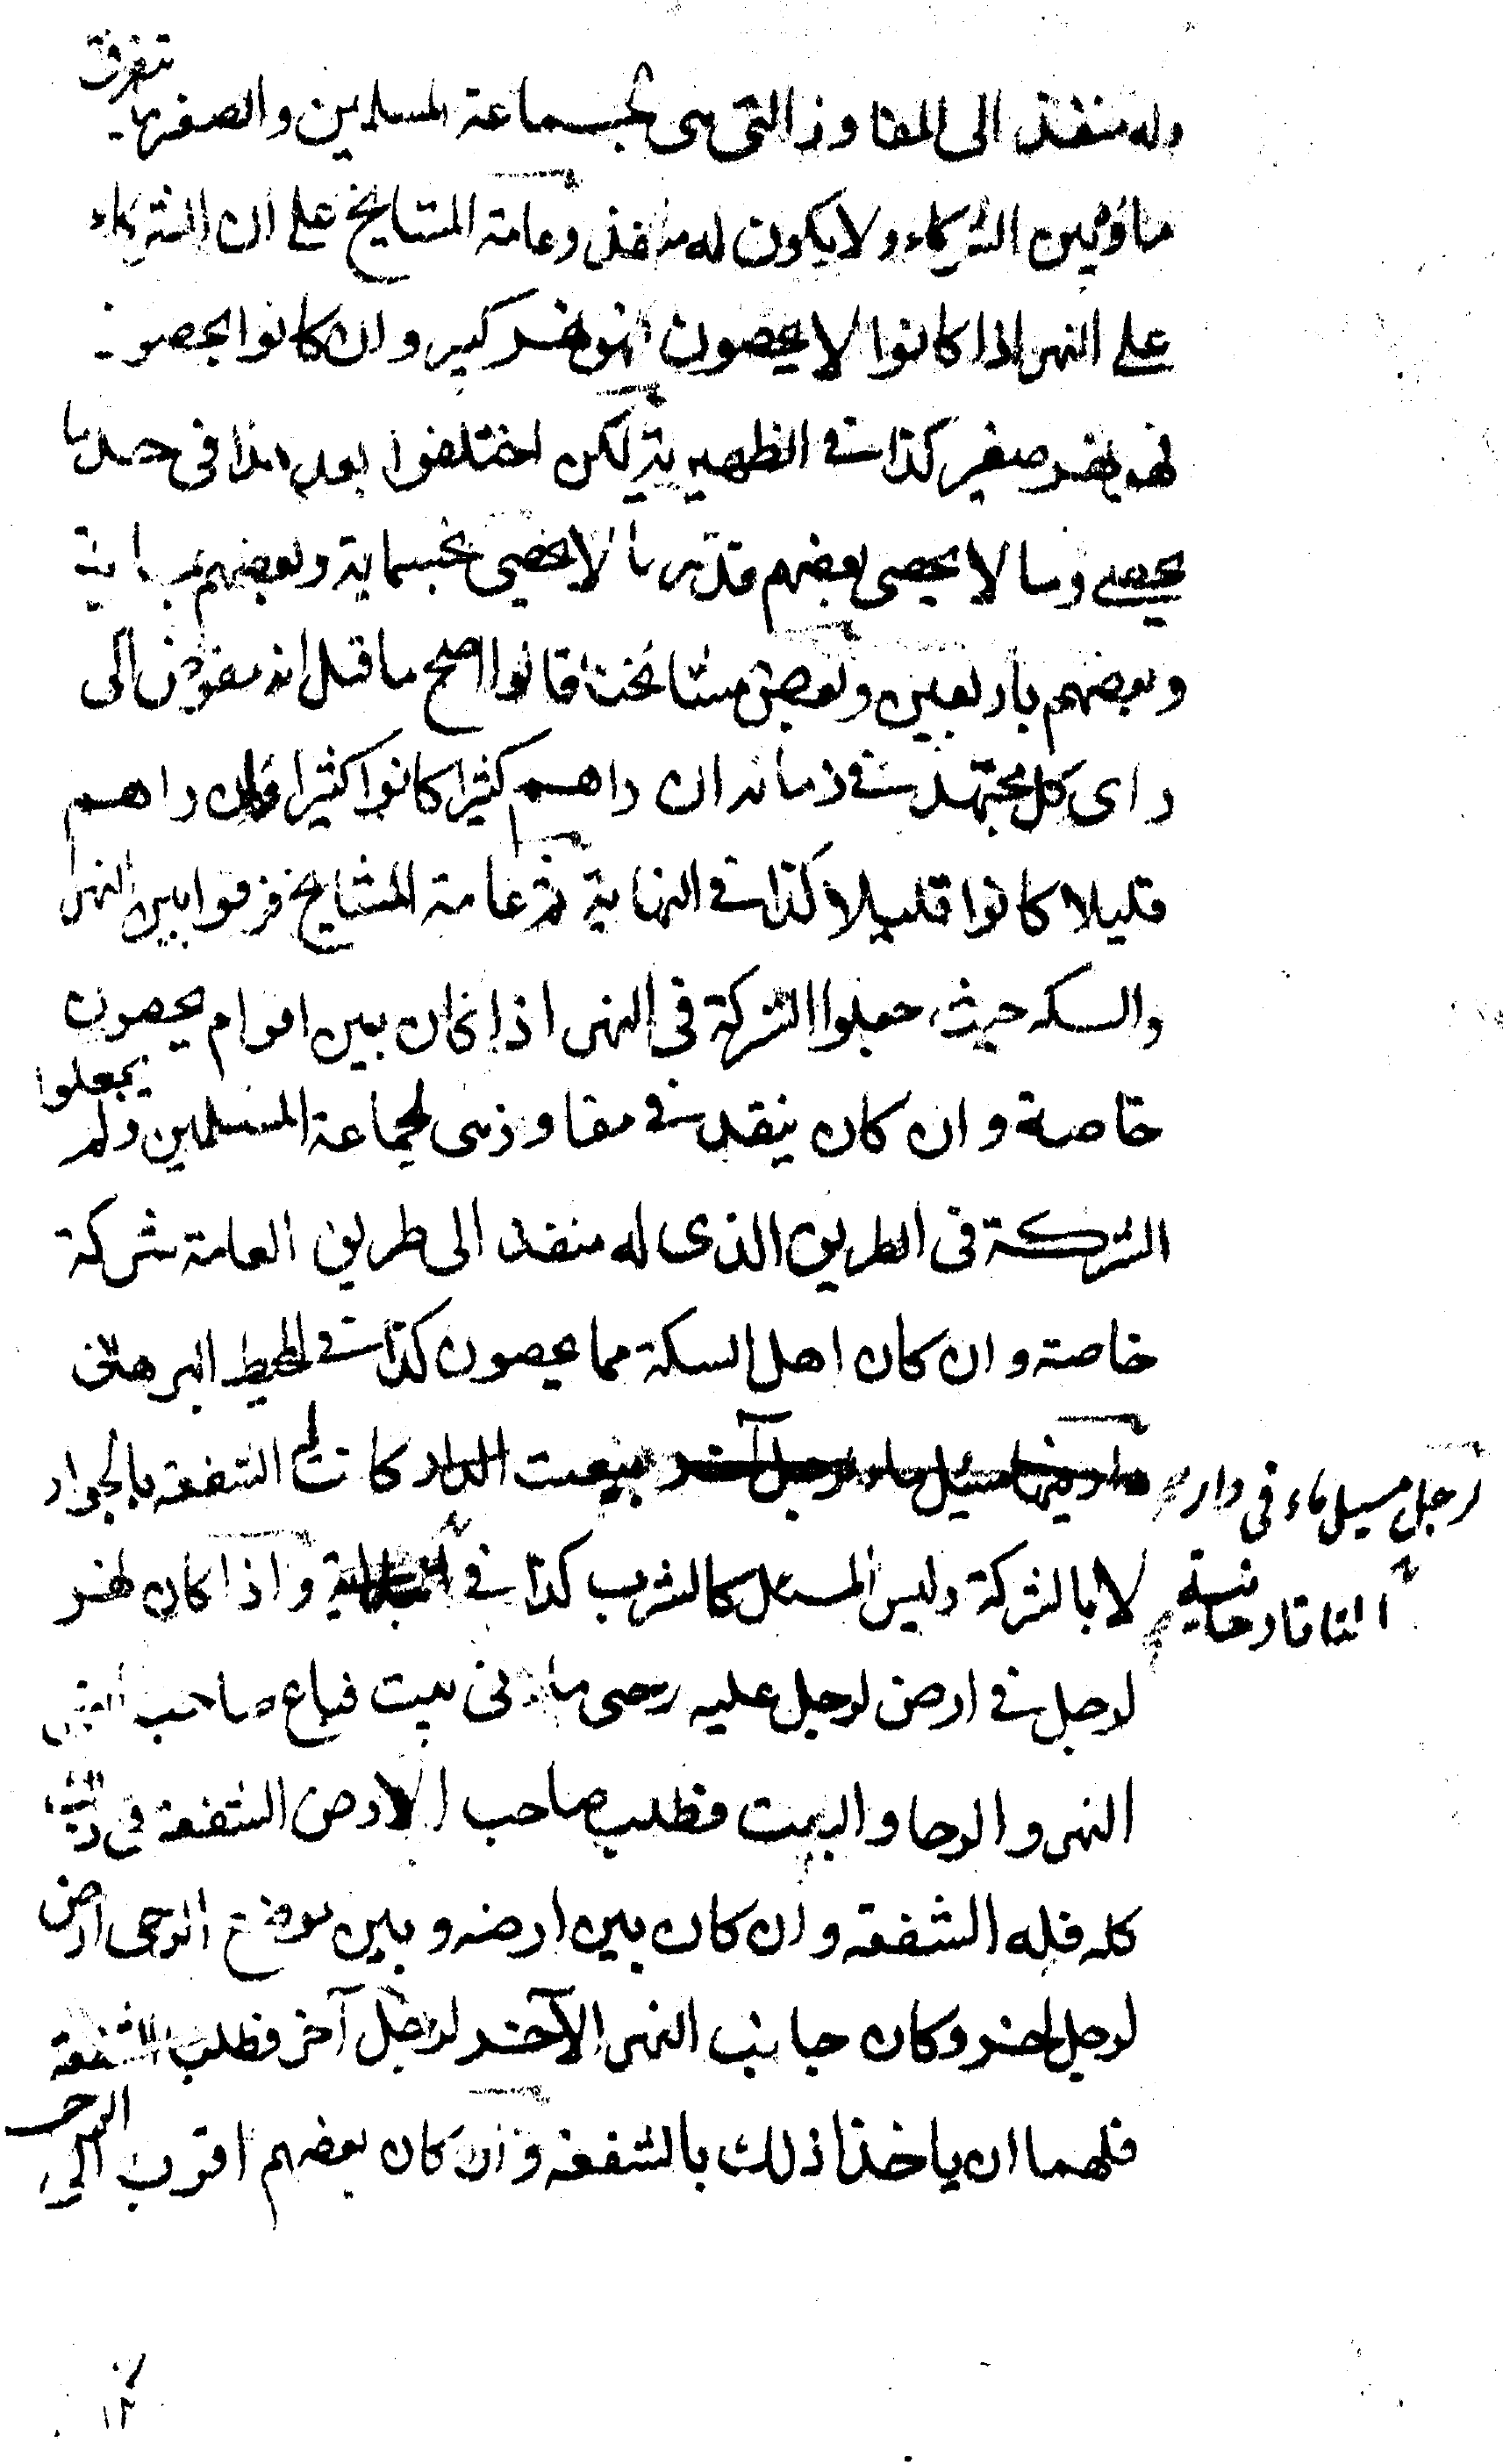 وله منفذ الى المفاوز التى هى لجماعة المسلمين والصغير ما يتفرق
ماؤه بين الشركاء ولا يكون له منفذ وعامة المشايخ على ان الشركاء
على النهر اذا كانوا لا يحصون فهو نهر كبير وان كانوا يحصون
فهو نهر صغير كذا فى الظهيرية لكن اختلفوا بعد هذا فى حد ما
يحصى وما لا يحصى بعضهم قدر ما لا يحصى بخمسماية وبعضهم بماية
وبعضهم باربعين وبعض مشايخنا قالوا اصح ما قيل انه مفوض الى
راى كل مجتهد فى زمانه ان راهم كثيرا كانوا كثيرا وان راهم
قليلا كانوا قليلا كذا فى النهاية ثم عامة المشايخ فرقوا بين النهر
والسكه حيث جعلوا الشركة فى النهر اذا كان بين اقوام يحصون
خاصة وان كان ينفذ فى مفاوز هى لجماعة المسلمين ولم يجعلوا
الشركة فى الطريق الذى له منفذ الى طريق العامة شركة
خاصة وان كان اهل السكة مما يحصون كذا فى المحيط البرهانى
لرجل مسيل ماء فى دار بيعت الدار كانت له الشفعة بالجوار
لا بالشركة وليس المسيل كالشرب كذا فى التاتارخانية واذا كان نهر
لرجل فى ارض لرجل عليه رحى ماء فى بيت فباع صاحب النهر
النهر والرحا والبيت فطلب صاحب الارض الشفعة فى ذلك
كله فله الشفعة وان كان بين ارضه وبين موضع الرحى ارض
لرجل اخر وكان جانب النهر الآخر لرجل آخر فطلب الشفعة
فلهما ان ياخذا ذلك بالشفعة وان كان بعضهم اقرب الى الرحى